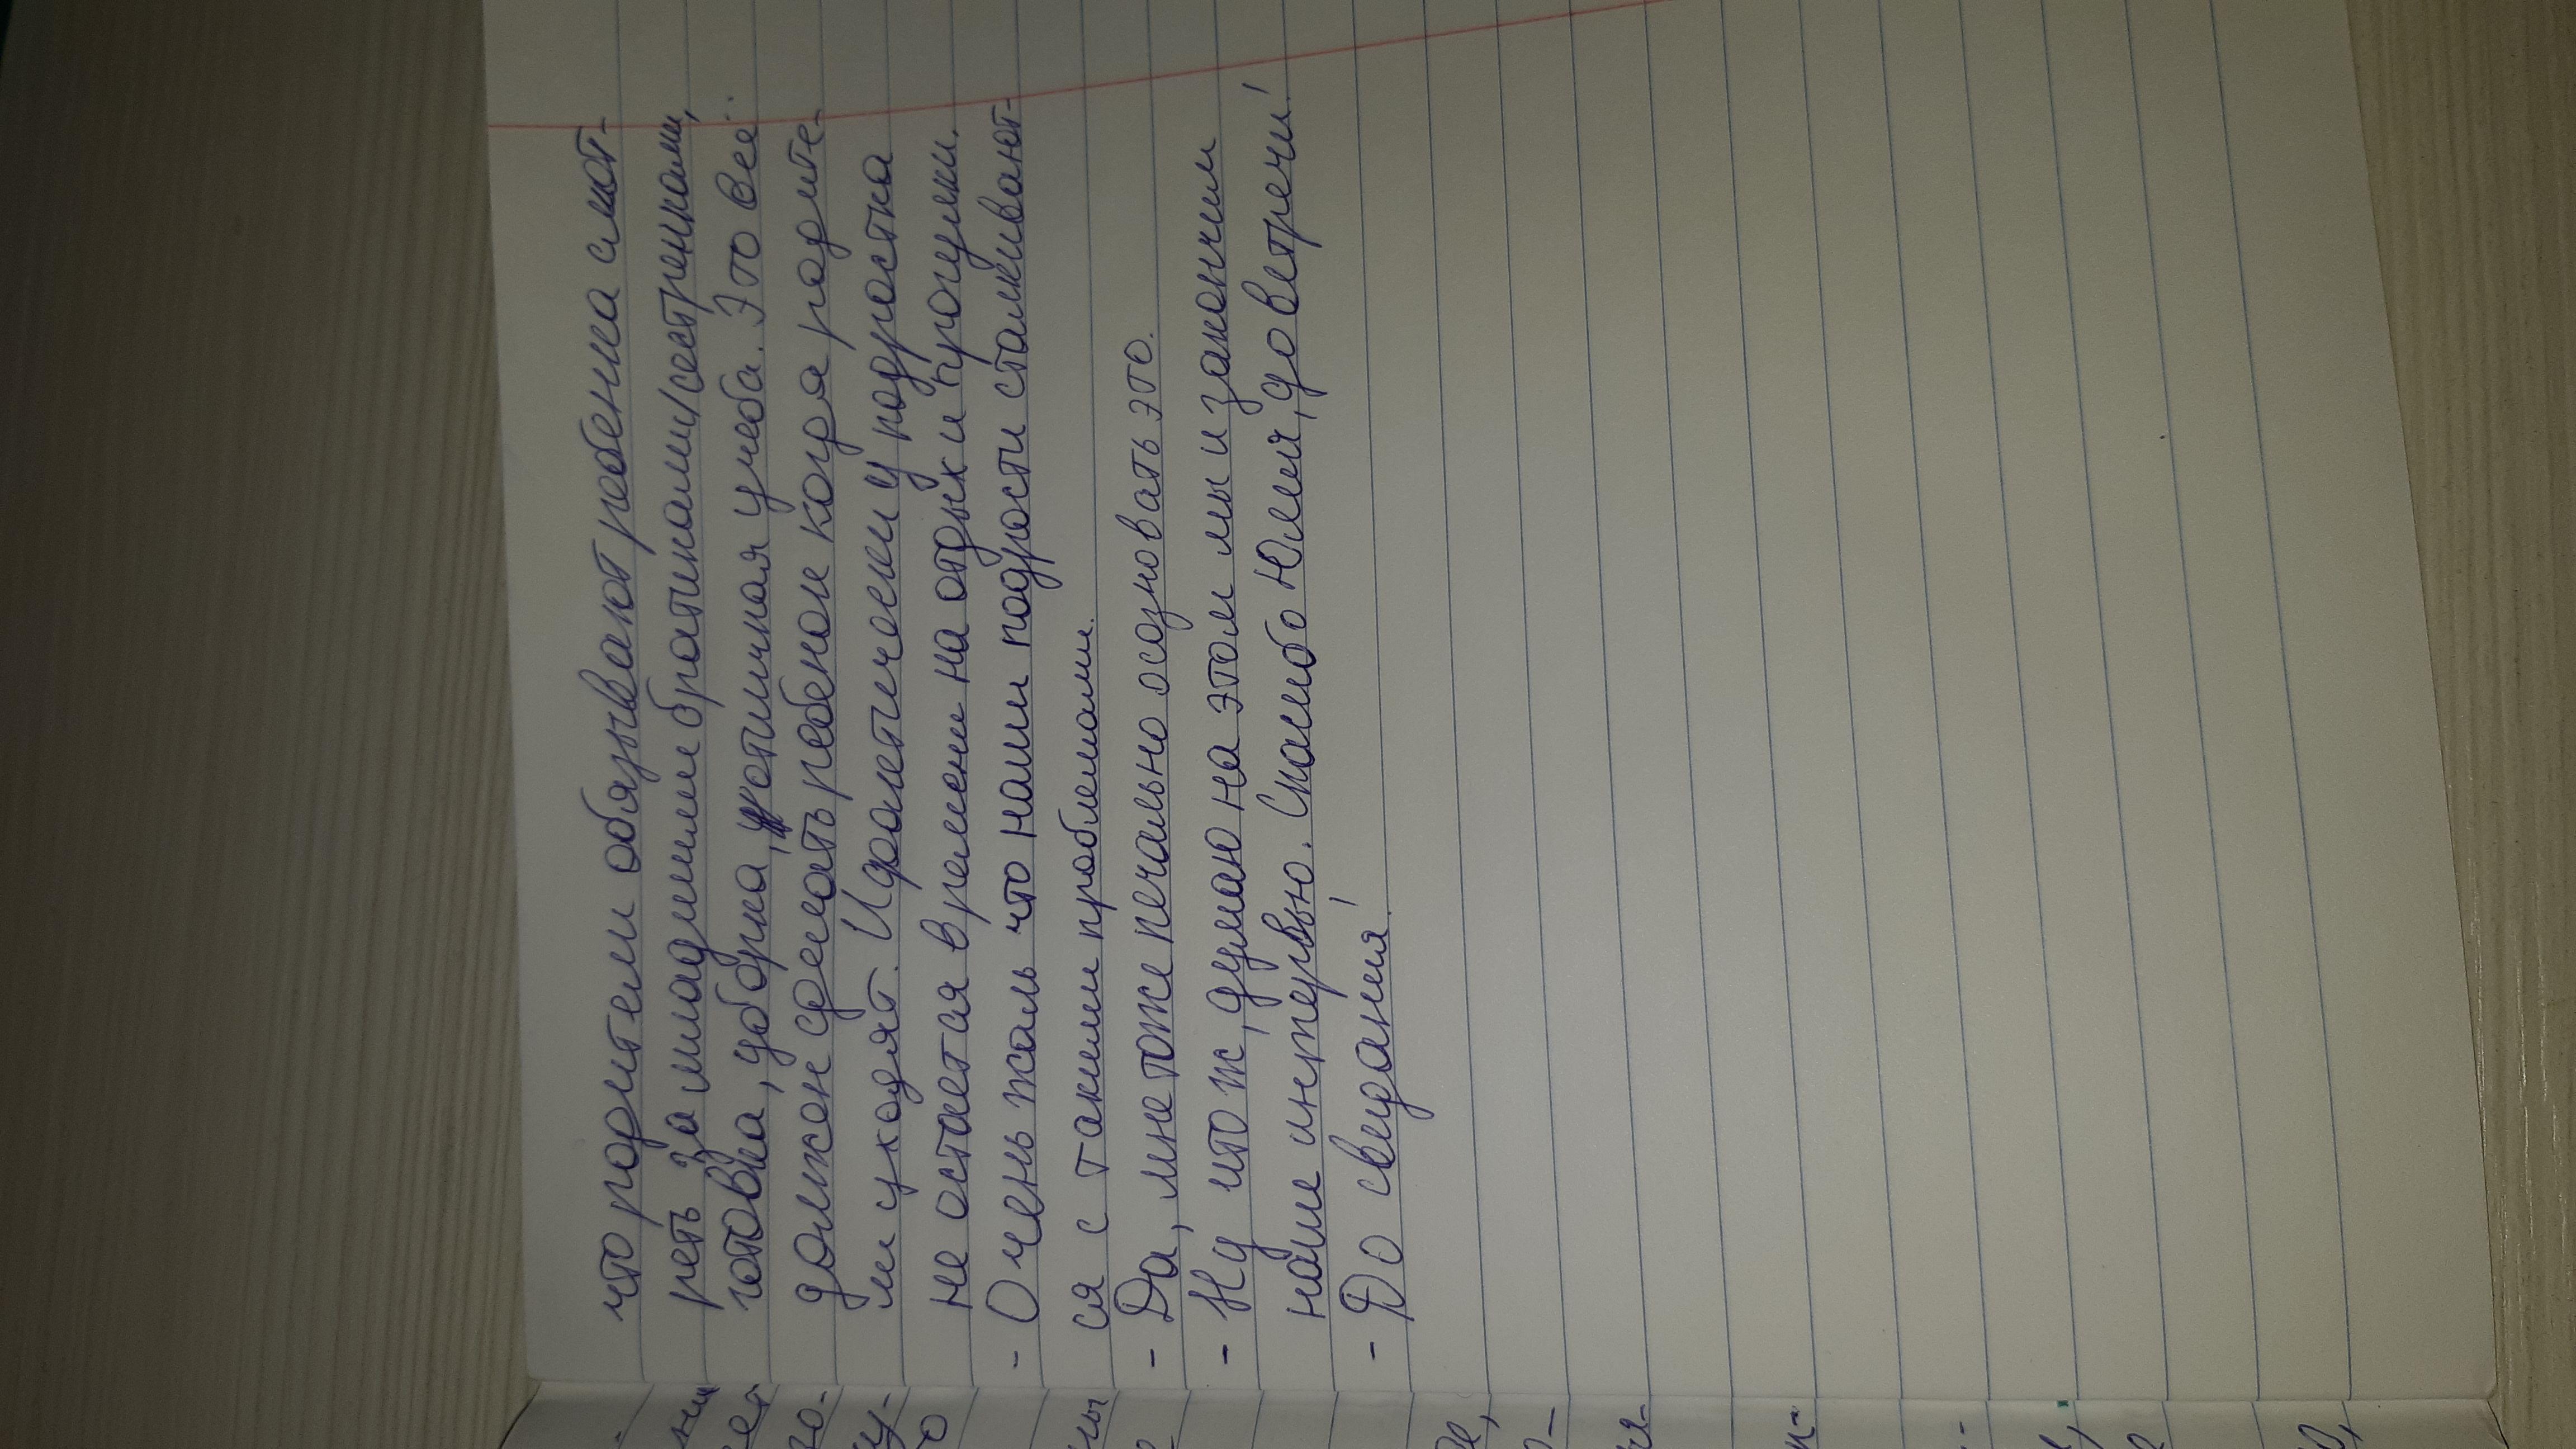 что родители обязывают ребенка смот-
реть за младшими братиками/сестренками,
готовка, уборка, отличная учеба. Это все
должен сделать ребенок когда родите-
ли уходят. И фактически у подростка
не остается времени на отдых и прогулки.
- Очень жаль что наши подрости сталкивают-
ся с такими проблемами.
- Да, мне тоже печально осозновать это.
- Ну что ж, думаю на этом мы и закончим
наше интервью. Спасибо Юлия, до встречи!
- До свидания!